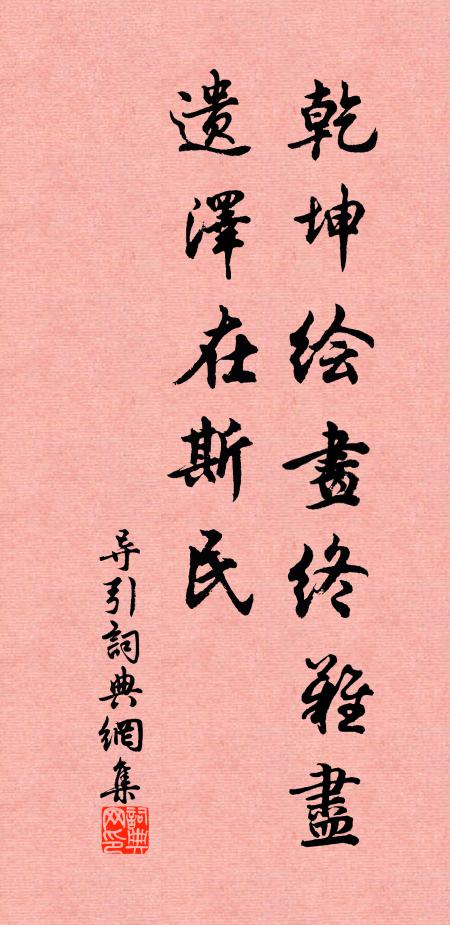 乾坤绘畫终難盡
遺澤在斯民
导引詞典網集
詞典网印